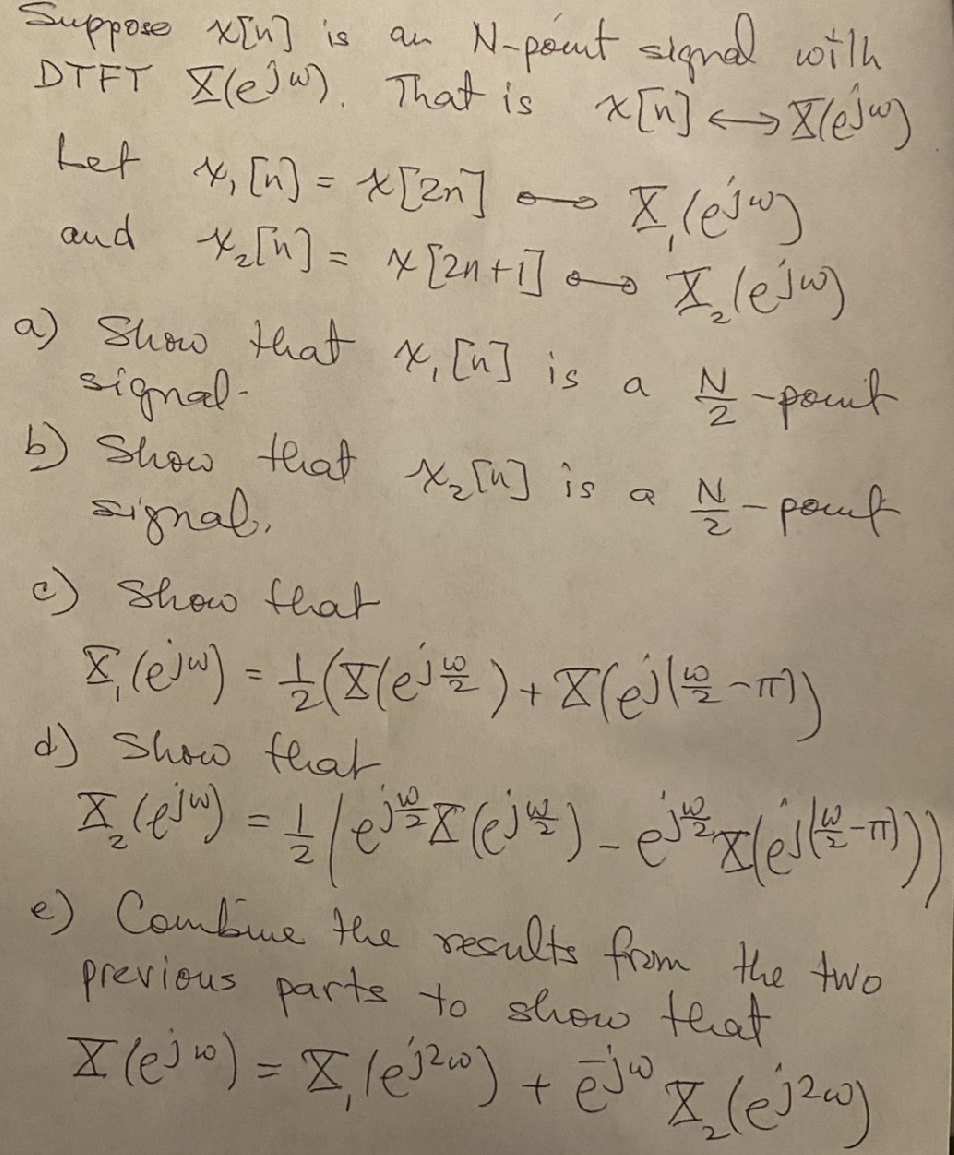 Suppose x[n] is an N-point signal with
DTFT X(e^{jω}). That is x[n] ⟷ X(e^{jω})
Let x₁[n] = x[2n] ∘—∘ X₁(e^{jω})
and x₂[n] = x[2n+1] ∘—∘ X₂(e^{jω})
a) Show that x₁[n] is a N/2-point
signal.
b) Show that x₂[n] is a N/2-point
signal.
c) Show that
X₁(e^{jω}) = 1/2(X(e^{jω/2}) + X(e^{j(ω/2-π)})
d) Show that
X₂(e^{jω}) = 1/2(e^{jω/2}X(e^{jω/2}) - e^{jω/2}X(e^{j(ω/2-π)}))
e) Combine the results from the two
previous parts to show that
X(e^{jω}) = X₁(e^{j2ω}) + e^{-jω} X₂(e^{j2ω})